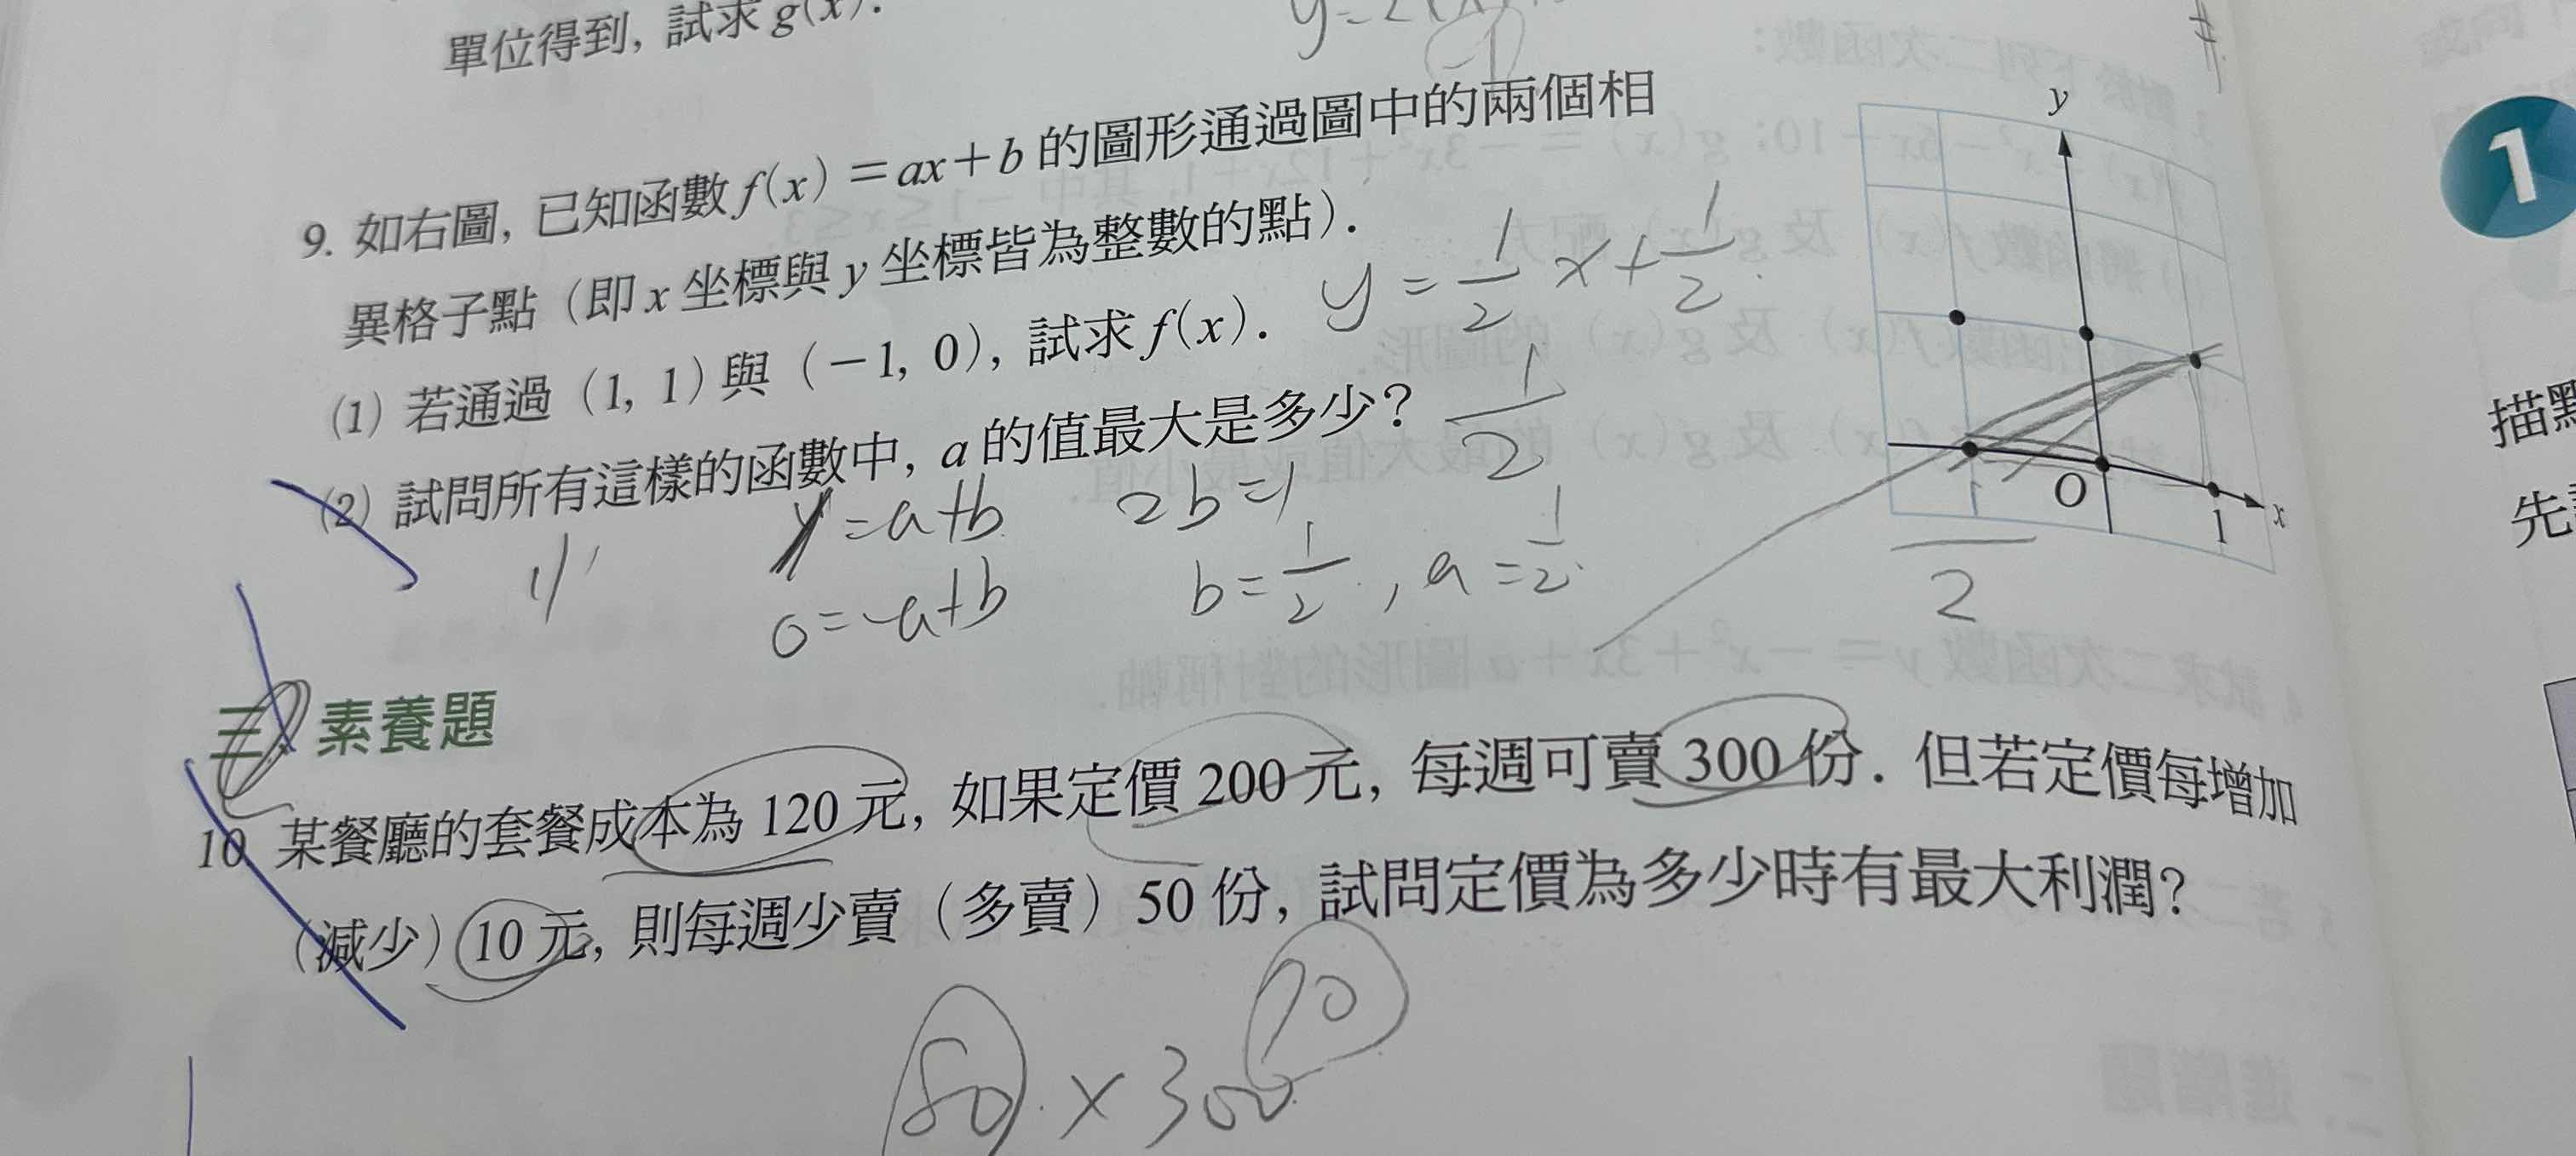 單位得到, 試求 g(x).
9. 如右圖, 已知函數 f(x)=ax+b 的圖形通過圖中的兩個相
異格子點 (即 x 坐標與 y 坐標皆為整數的點).
(1) 若通過 (1, 1) 與 (-1, 0), 試求 f(x). y=1/2x+1/2
(2) 試問所有這樣的函數中, a 的值最大是多少? 1/2
=a+b 2b=1
0=-a+b b=1/2, a=1/2
y
O
1
x
2
三、素養題
10. 某餐廳的套餐成本為 120 元, 如果定價 200 元, 每週可賣 300 份. 但若定價每增加
(減少) 10 元, 則每週少賣 (多賣) 50 份, 試問定價為多少時有最大利潤?
80 × 300
1
描
先